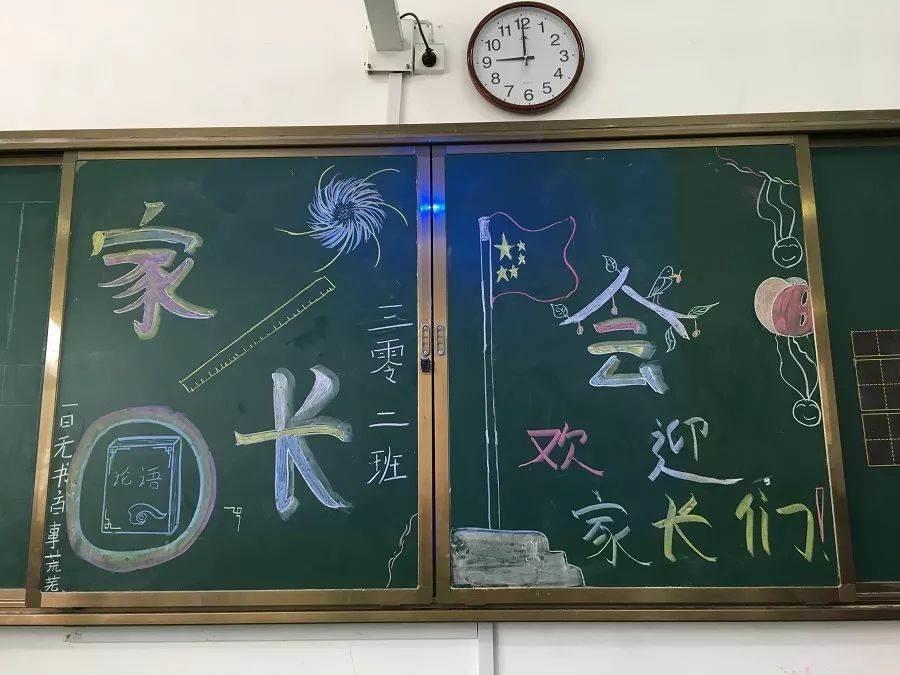 12 1 2 3 4 5 6 7 8 9 10 11
家长会
三零二班
一日无书百事荒芜。
论语
欢迎
家长们！